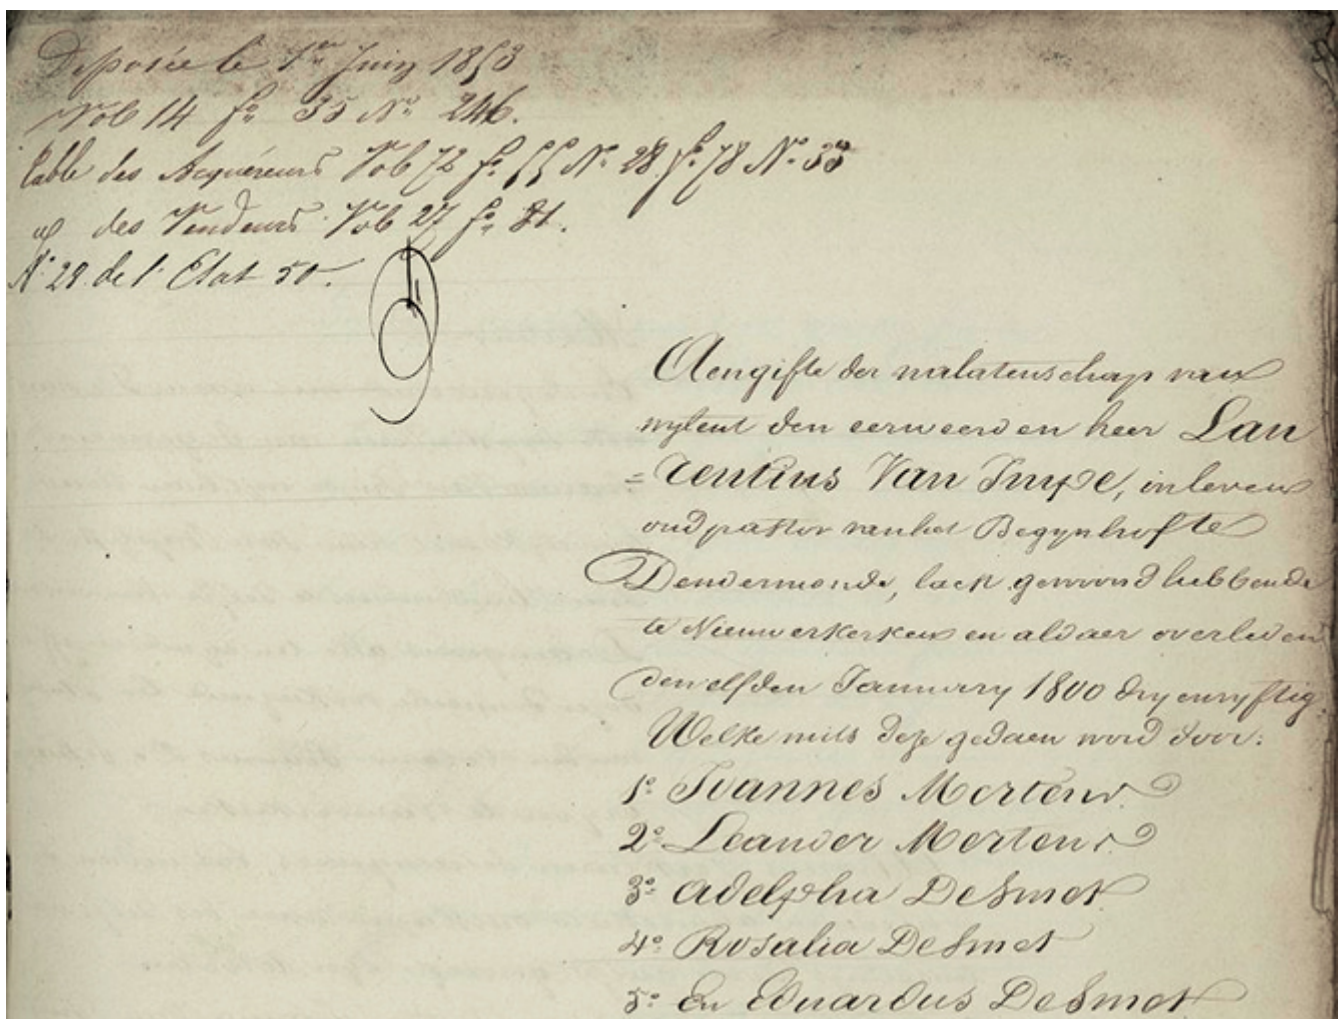 Déposée le 1er Juin 1853
Vol 14 fo 35 No 246.
table des Acquéreurs Vol 72 fo 55 No 28 fo 78 No 33
des Vendeurs Vol 27 fo 81.
No 29 de l'Etat 50.
Aengifte der nalatenschap van
wylent den eerweerden heer Lau
=rentius Van Impe, in leven
oud pastor van het Begynhof te
Dendermonde, laest gewoond hebbende
te Nieuwerkerken en aldaer overleden
den elfden January 1800 dryenvyftig.
Welke mits deze gedaen word door:
1o Ivannes Mertens
2o Leander Mertens
3o Adelpha DeSmet
4o Rosalia DeSmet
5o En Eduardus DeSmet